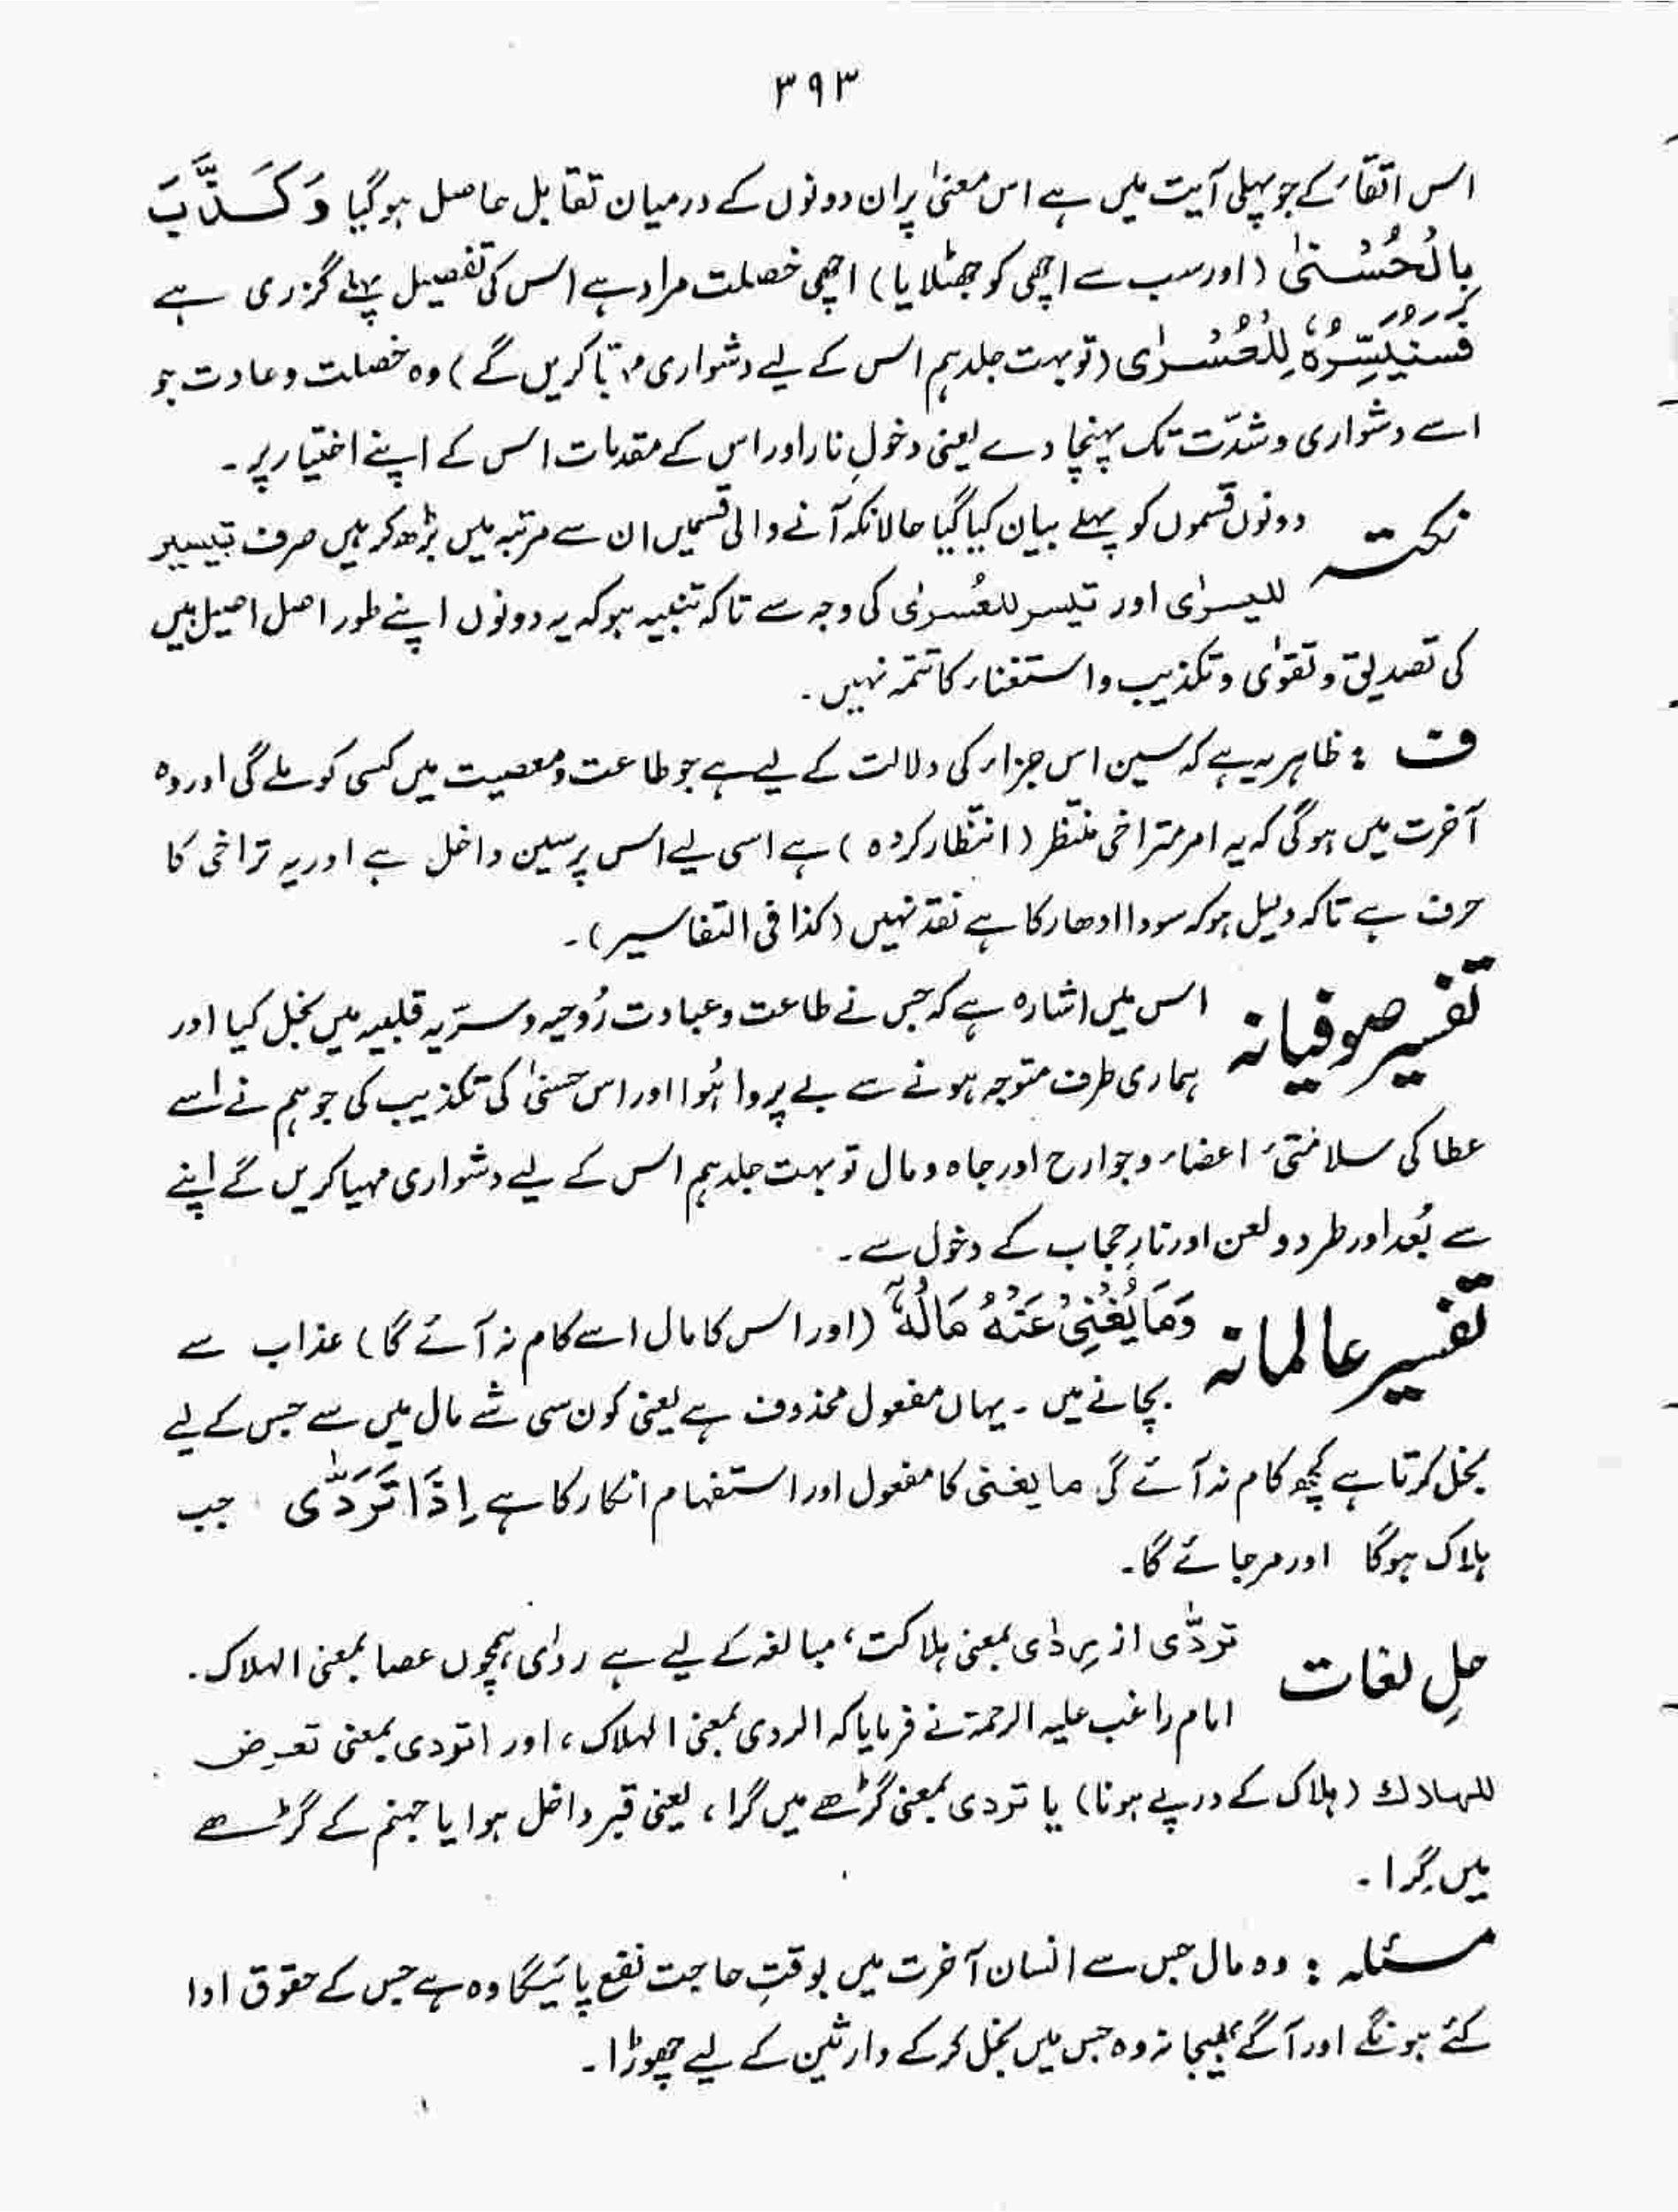 ۳۹۳
اس اتقاء کے جو پہلی آیت میں ہے اس معنیٰ پر ان دونوں کے درمیان تقابل حاصل ہوگیا وَكَذَّبَ
بِالْحُسْنٰی (اور سب سے اچھی کو جھٹلایا) اچھی خصلت مراد ہے اس کی تفصیل پہلے گزری ہے
فَسَنُيَسِّرُهٗ لِلْعُسْرٰی (تو بہت جلد ہم اس کے لیے دشواری مہیا کریں گے) وہ خصلت و عادت جو
اسے دشواری و شدّت تک پہنچا دے یعنی دخولِ نار اور اس کے مقدمات اس کے اپنے اختیار پر۔
نکتہ دونوں قسموں کو پہلے بیان کیا گیا حالانکہ آنے والی قسمیں ان سے مرتبہ میں بڑھ کر ہیں صرف تیسیر
للیسرٰی اور تیسر للعُسرٰی کی وجہ سے تاکہ تنبیہ ہو کہ یہ دونوں اپنے طور اصل اصیل ہیں
کی تصدیق و تقوٰی و تکذیب و استغناء کا تتمہ نہیں۔
ف : ظاہر یہ ہے کہ سین اس جزاء کی دلالت کے لیے ہے جو طاعت و معصیت میں کسی کو ملے گی اور وہ
آخرت میں ہوگی کہ یہ امر متراخی منتظر (انتظار کردہ) ہے اسی لیے اس پر سین داخل ہے اور یہ تراخی کا
حرف ہے تاکہ دلیل ہو کہ سودا ادھار کا ہے نقد نہیں (کذا فی التفاسیر)۔
تفسیر صوفیانہ اس میں اشارہ ہے کہ جس نے طاعت و عبادت رُوحیہ و سرّیہ قلبیہ میں بخل کیا اور
ہماری طرف متوجہ ہونے سے بے پروا ہُوا اور اس حسنیٰ کی تکذیب کی جو ہم نے اسے
عطا کی سلامتیٔ اعضاء و جوارح اور جاہ و مال تو بہت جلد ہم اس کے لیے دشواری مہیا کریں گے اپنے
سے بُعد اور طرد و لعن اور نارِ حجاب کے دخول سے۔
تفسیر عالمانہ وَمَا يُغْنِیْ عَنْهُ مَالُهٗٓ (اور اس کا مال اسے کام نہ آئے گا) عذاب سے
بچانے میں۔ یہاں مفعول محذوف ہے یعنی کون سی شے مال میں سے جس کے لیے
بخل کرتا ہے کچھ کام نہ آئے گی ما یغنی کا مفعول اور استفہام انکار کا ہے اِذَا تَرَدّٰی جب
ہلاک ہوگا اور مر جائے گا۔
حلِ لغات تردّٰی از رِدٰی بمعنی ہلاکت، مبالغہ کے لیے ہے ردٰی ہمچوں عصا بمعنی الہلاک۔
امام راغب علیہ الرحمۃ نے فرمایا کہ الردی بمعنی الہلاک، اور اتودی بمعنی تعرض
للہلاك (ہلاک کے درپے ہونا) یا تردی بمعنی گڑھے میں گرا، یعنی قبر داخل ہوا یا جہنم کے گڑھے
میں گرا۔
مسئلہ : وہ مال جس سے انسان آخرت میں بوقتِ حاجت نفع پائیگا وہ ہے جس کے حقوق ادا
کئے ہونگے اور آگے بھیجا نہ وہ جس میں بخل کر کے وارثین کے لیے چھوڑا۔